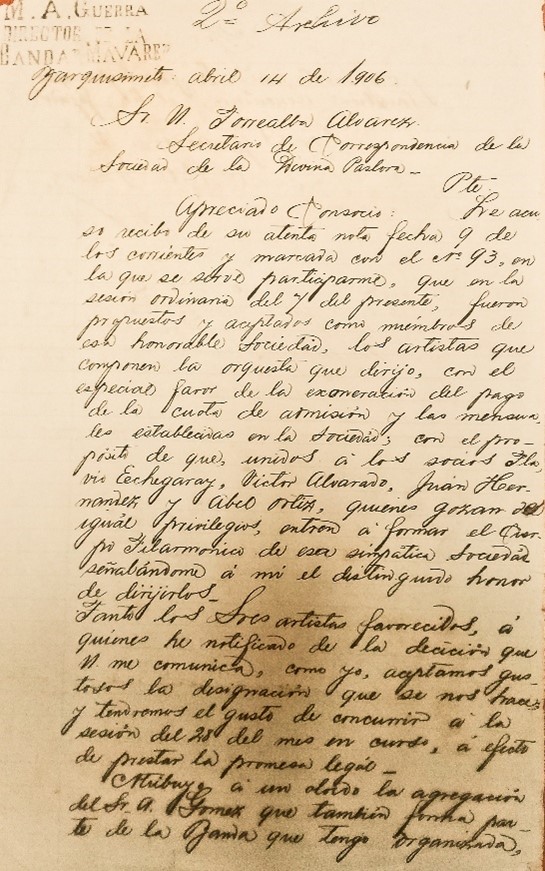 M. A. GUERRA
DIRECTOR DE LA
BANDA MAVARE
2º Archivo
Barquisimeto: abril 14 de 1.906.
Sr. N. Torrealba Alvarez.
Secretario de Correspondencia de la
Sociedad de la Divina Pastora_
Pte.
Apreciado Consocio: Le acu
so recibo de su atenta nota fecha 9 de
los corrientes y marcada con el nº 93, en
la que se sirve participarme, que en la
sesión ordinaria del 7 del presente, fueron
propuestos y aceptados como miembros de
esa honorable Sociedad, los artistas que
componen la orquesta que dirijo, con el
especial favor de la exoneración del pago
de la cuota de admisión y las mensua,
les establecidas en la Sociedad; con el pro-
pósito de que, unidos á los socios Fla,
vio Echegaray, Victor Alvarado, Juan Her-
nandez y Abel Ortiz, quienes gozan del
iguál privilegios, entrón á formar el Cuer-
po Filarmónico de esa simpática Sociedad
señalándome á mi el distinguido honor
de dirijirlos_
Tanto los Sres artistas favorecidos, á
quienes he notificado de la decición que
U. me comunica, como yo, aceptamos gus-
tosos la designación que se nos hace,
y tendremos el gusto de concurrir á la
sesión del 28 del mes en curso, á efecto
de prestar la promesa legál_
Atribuyo á un olvido la agregación
del Sr. A. Gomez que también forma par-
te de la Banda que tengo organizada,